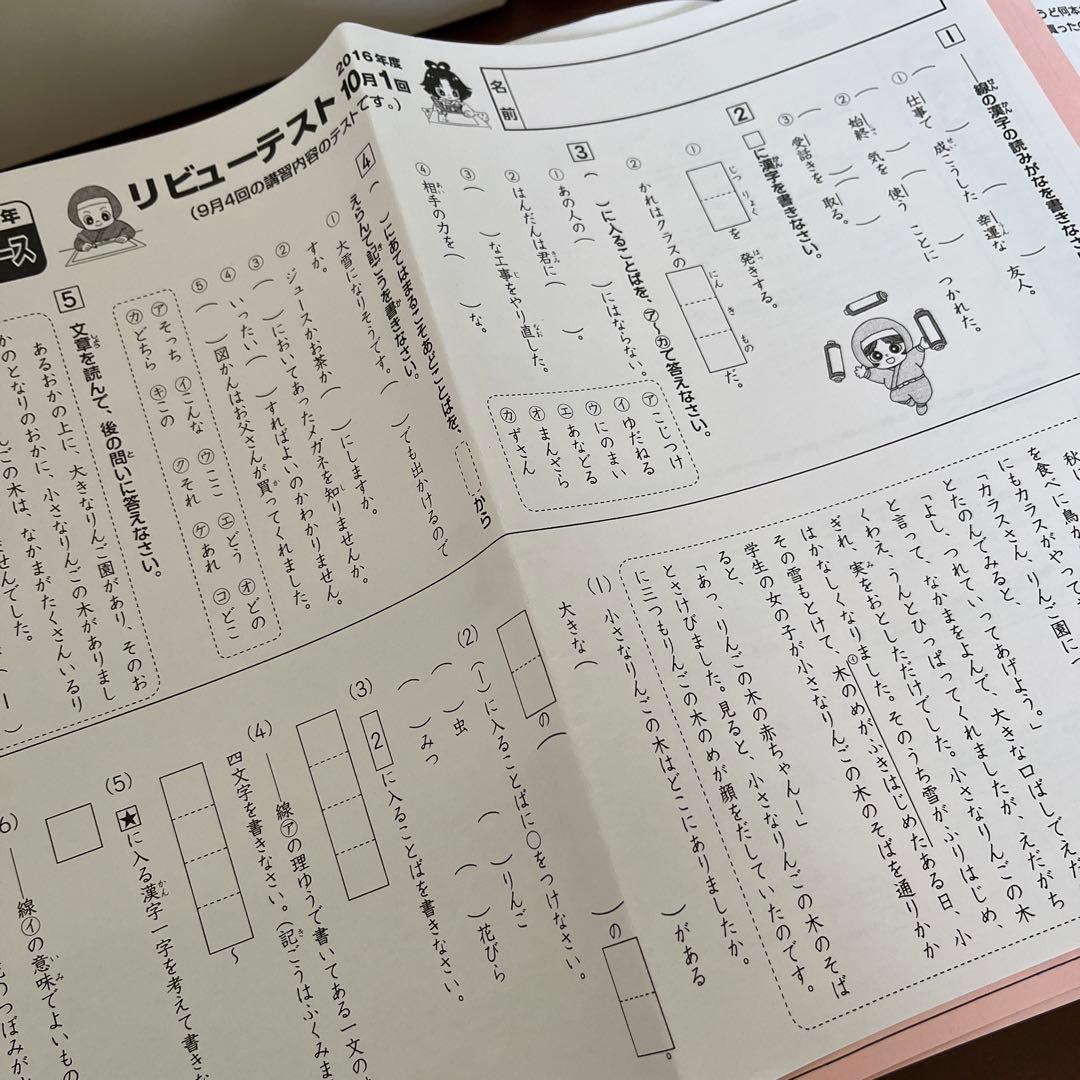 年
ース
リビューテスト
2016年度
10月1回
(9月4回の講習内容のテストです。)
名前
1 ――線の漢字の読みがなを書きなさ
① 仕事で 成こうした 幸運な 友人。
② 始終 気を 使う ことに つかれた。
③ 受話きを 取る。
2 □に漢字を書きなさい。
① じつりょく を 発きする。
② かれはクラスの にんきもの だ。
3 ( )に入ることばを、㋐〜㋕で答えなさい。
① あの人の( )にはならない。
② はんだんは君に( )。
③ ( )な工事をやり直した。
④ 相手の力を( )な。
㋐ こじつけ
㋑ ゆだねる
㋒ にのまい
㋓ あなどる
㋔ まんざら
㋕ ずさん
4 ( )にあてはまるこそあどことばを、 から
えらんで記ごうを書きなさい。
① 大雪になりそうです。( )でも出かけるので
すか。
② ジュースかお茶か( )にしますか。
③ ( )においてあったメガネを知りませんか。
④ いったい( )すればよいのかわかりません。
⑤ ( )図かんはお父さんが買ってくれました。
㋐ そっち ㋑ こんな ㋒ ここ ㋓ どう ㋔ どの
㋕ どちら ㋖ この ㋗ それ ㋘ あれ ㋙ どこ
5 文章を読んで、後の問いに答えなさい。
あるおかの上に、大きなりんご園があり、そのお
かのとなりのおかに、小さなりんごの木がありまし
んごの木は、なかまがたくさんいるり
ませんでした。
秋
を食べに鳥が
にもカラスがやって
「カラスさん、りんご園に
とたのんでみると、
「よし、つれていってあげよう。」
と言って、なかまをよんで、大きな口ばしでえだ
くわえ、うんとひっぱってくれましたが、えだがち
ぎれ、実をおとしただけでした。小さなりんごの木
はかなしくなりました。そのうち雪がふりはじめ、
その雪もとけて、木のめがふきはじめたある日、小
学生の女の子が小さなりんごの木のそばを通りかか
ると、
「あっ、りんごの木の赤ちゃん!」
とさけびました。見ると、小さなりんごの木のそば
に三つもりんごの木のめが顔をだしていたのです。
(1) 小さなりんごの木はどこにありましたか。
大きな( )がある
の( )の 。
(2) ( 1 )に入ることばに○をつけなさい。
( )虫 ( )りんご
( )みつ ( )花びら
(3) 2 に入ることばを書きなさい。
(4) ――線㋐の理ゆうで書いてある一文の
四文字を書きなさい。(記ごうはふくみま
〜
(5) ★に入る漢字一字を考えて書きな
6) ――線㋑の意味でよいもの
うど何本
買った